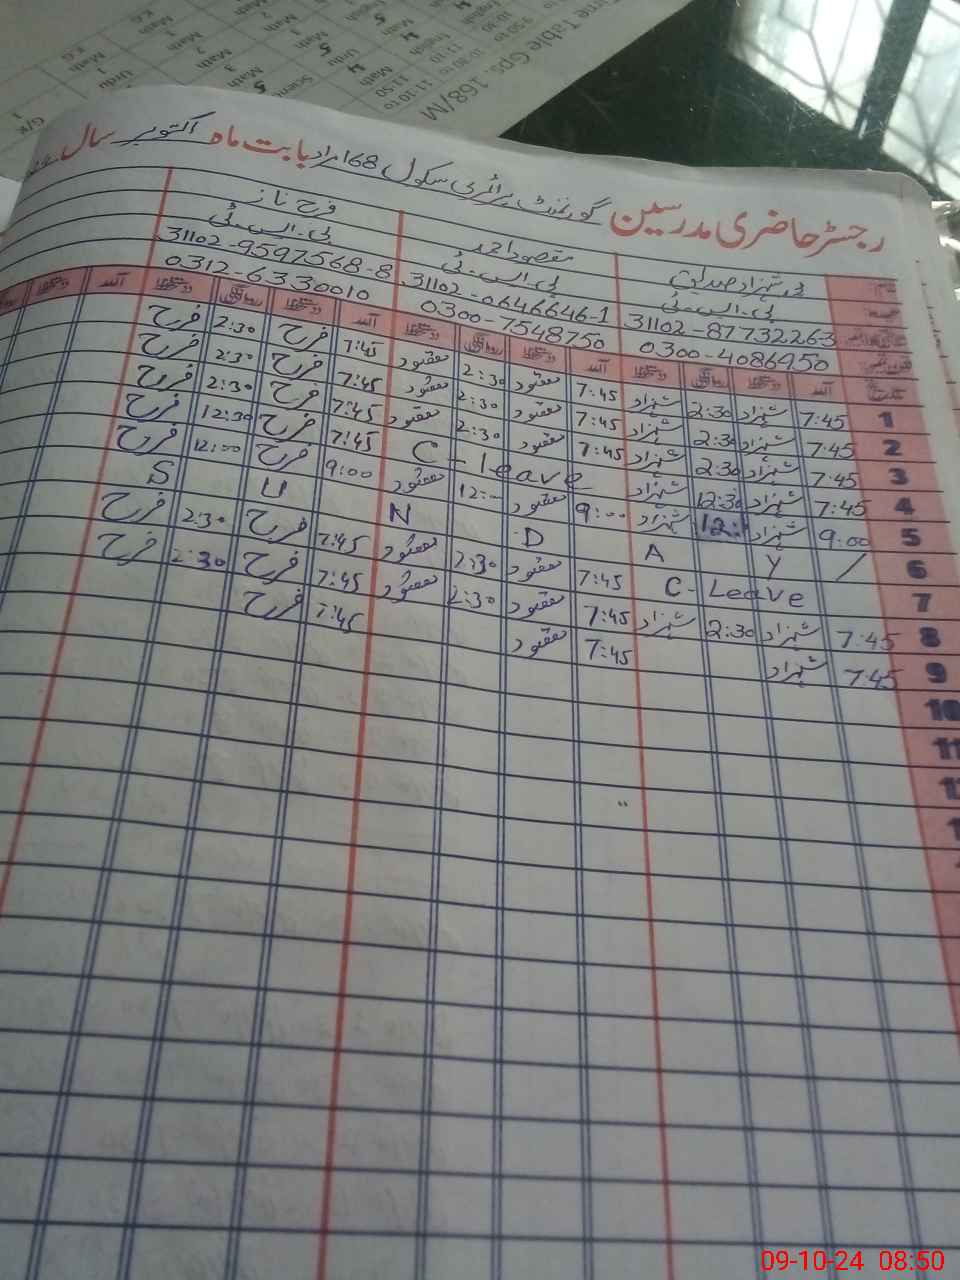 Time Table Gps. 168/M
رجسٹر حاضری مدرسین گورنمنٹ پرائمری سکول 168 مراد بابت ماہ اکتوبر سال
شہزاد صدیق مقصود احمد فرح ناز
پی۔ایس۔ٹی پی۔ایس۔ٹی پی۔ایس۔ٹی
31102-87732263 31102-0646646-1 31102-9597568-8
0300-4086950 0300-7548750 0312-6330010
تاریخ آمد دستخط روانگی دستخط آمد دستخط روانگی دستخط آمد دستخط روانگی دستخط آمد دستخط
1 7:45 شہزاد 2:30 شہزاد 7:45 مقصود 2:30 مقصود 7:45 فرح 2:30 فرح
2 7:45 شہزاد 2:30 شہزاد 7:45 مقصود 2:30 مقصود 7:45 فرح 2:30 فرح
3 7:45 شہزاد 2:30 شہزاد 7:45 مقصود 2:30 مقصود 7:45 فرح 2:30 فرح
4 7:45 شہزاد 12:30 شہزاد C-leave 7:45 فرح 12:30 فرح
5 9:00 شہزاد 12: شہزاد 9:00 مقصود 12:00 مقصود 9:00 فرح 12:00 فرح
6 / S U N D A Y
7 C-Leave 7:45 مقصود 2:30 مقصود 7:45 فرح 2:30 فرح
8 7:45 شہزاد 2:30 شہزاد 7:45 مقصود 2:30 مقصود 7:45 فرح 2:30 فرح
9 7:45 شہزاد 7:45 مقصود 7:45 فرح
10
11
09-10-24 08:50